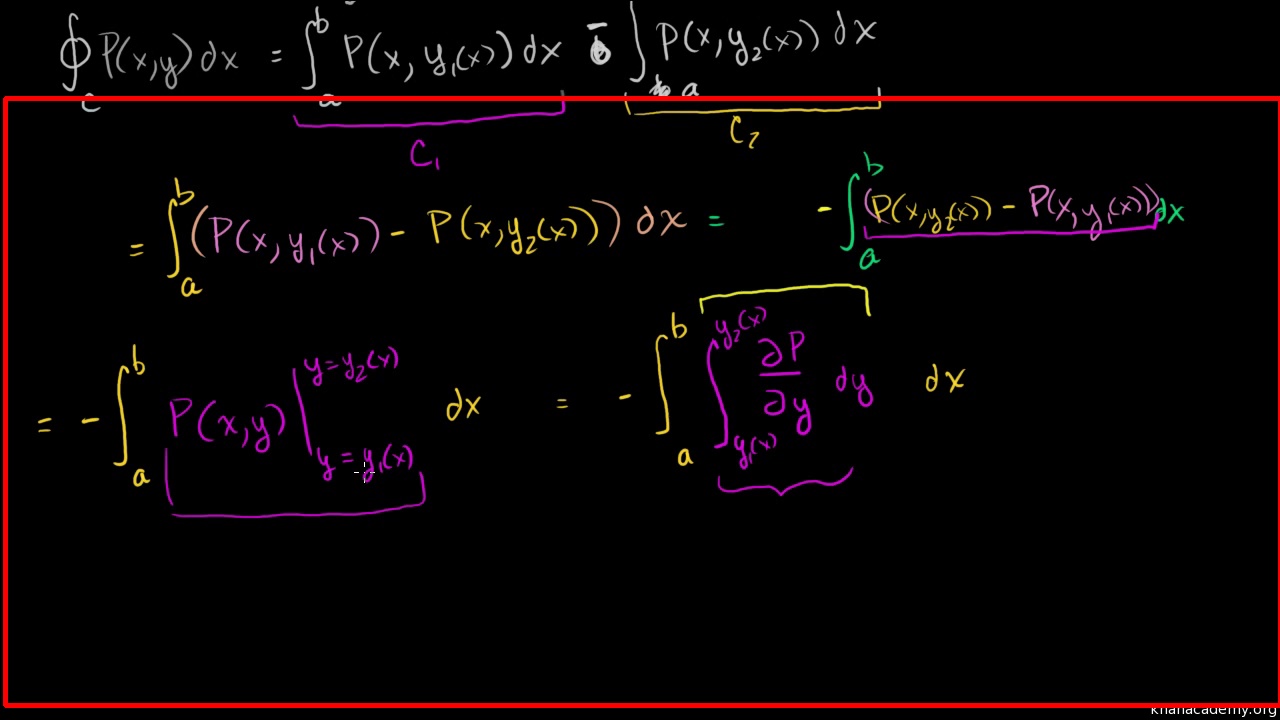 ∮_C P(x,y) dx = ∫_a^b P(x, y₁(x)) dx − ∫_a P(x, y₂(x)) dx
C₁ C₂
= ∫_a^b (P(x, y₁(x)) − P(x, y₂(x))) dx = − ∫_a^b (P(x, y₂(x)) − P(x, y₁(x))) dx
= − ∫_a^b P(x,y) |_{y=y₁(x)}^{y=y₂(x)} dx = − ∫_a^b ∫_{y₁(x)}^{y₂(x)} ∂P/∂y dy dx
khanacademy.org